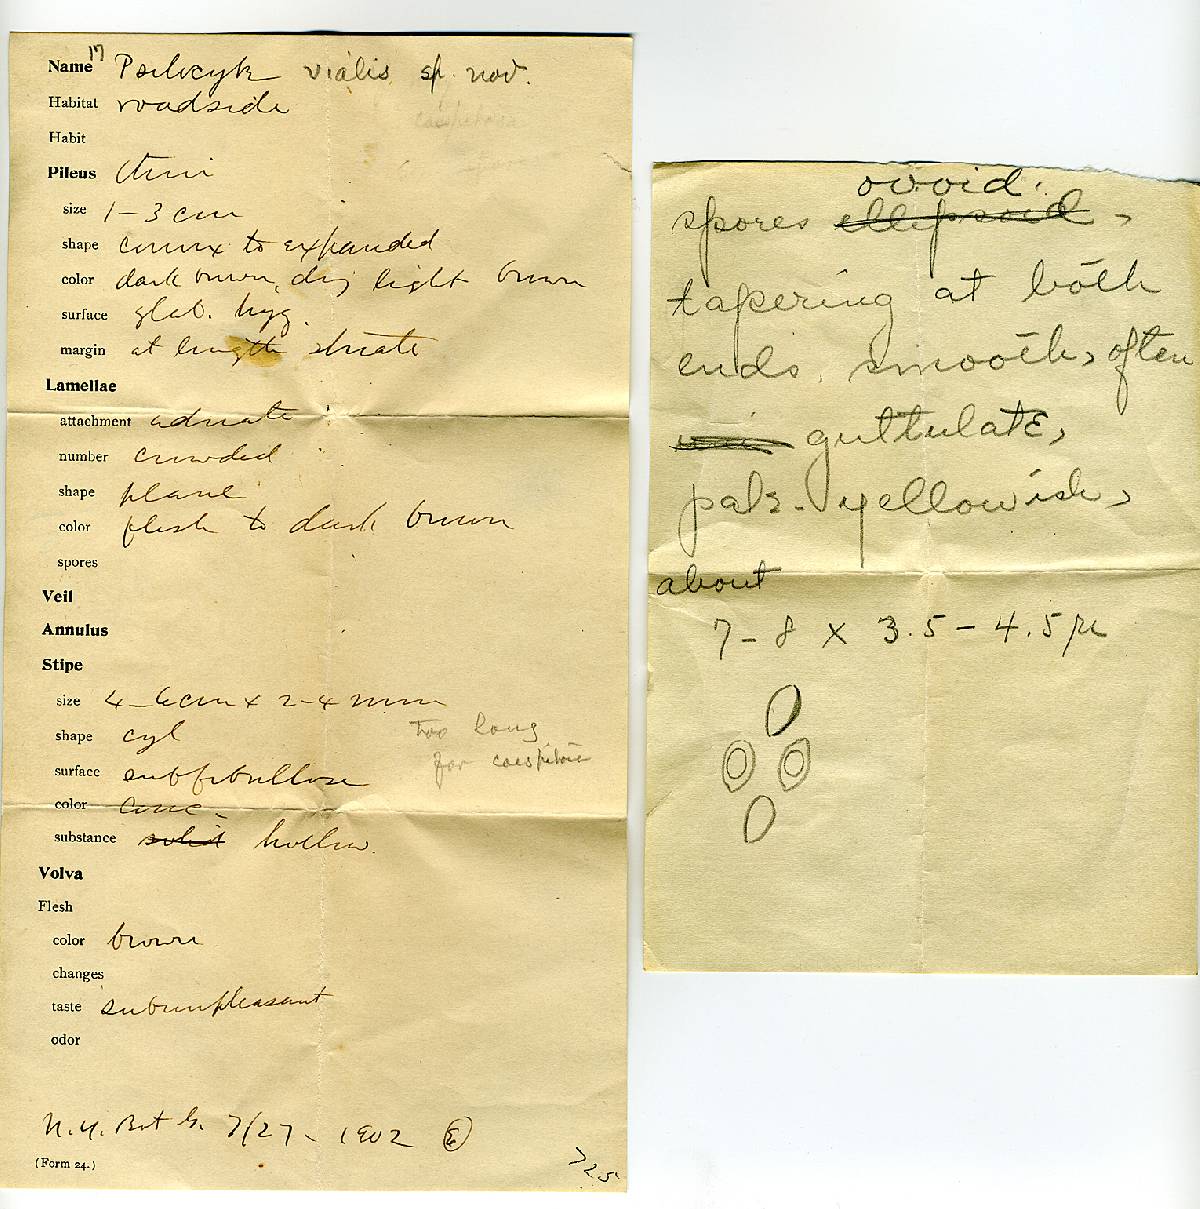 17
Name Psilocybe vialis sp. nov.
Habitat roadside
caespitosa
Habit
Pileus thin
size 1-3 cm
shape convex to expanded
color dark brown, dry light brown
surface glab. hyg.
margin at length striate
Lamellae
attachment adnate
number crowded
shape plane
color flesh to dark brown
spores
Veil
Annulus
Stipe
size 4-6cm x 2-4 mm
shape cyl
too long
for caespitosa
surface subfibrillose
color conc.
substance solid hollow
Volva
Flesh
color brown
changes
taste subunpleasant
odor
N.Y. Bot G. 7/27-1902 E
(Form 24.)
725
ovoid.
spores ellipsoid,
tapering at both
ends, smooth, often
guttulate,
pale-yellowish,
about
7-8 x 3.5-4.5 µ